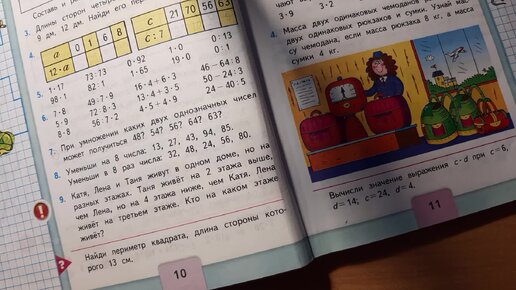 Составь и р
3. Длины сторон четыре
9 дм, 12 дм. Найди его пер
4.
a 0 1 6 8
12·a
c 21 70 56 63
c : 7
5. 1·17 73:73 0·92 1·0 0:13
98·1 82:1 1·65 19:0 0:1
6. 7·8 49:7·9 16-4+6·3 46-64:8
5·9 72:8·3 13-6+4·5 50-24:3
8·8 56:7·2 4·5+4·9 24-40:5
7. При умножении каких двух однозначных чисел
может получиться 48? 54? 56? 64? 63?
8. Уменьши на 8 числа: 13, 27, 43, 94, 85.
Уменьши в 8 раз числа: 32, 48, 24, 56, 80.
9. Катя, Лена и Таня живут в одном доме, но на
разных этажах. Таня живёт на 2 этажа выше,
чем Лена, но на 4 этажа ниже, чем Катя. Лена
живёт на третьем этаже. Кто на каком этаже
живёт?
!
?
Найди периметр квадрата, длина стороны кото-
рого 13 см.
10
3·9 3·2
4. Масса двух одинаковых чемоданов
двух одинаковых рюкзаков и сумки. Узнай мас-
су чемодана, если масса рюкзака 8 кг, а масса
сумки 4 кг.
Вычисли значение выражения c·d при c=6,
d=14; c=24, d=4.
11